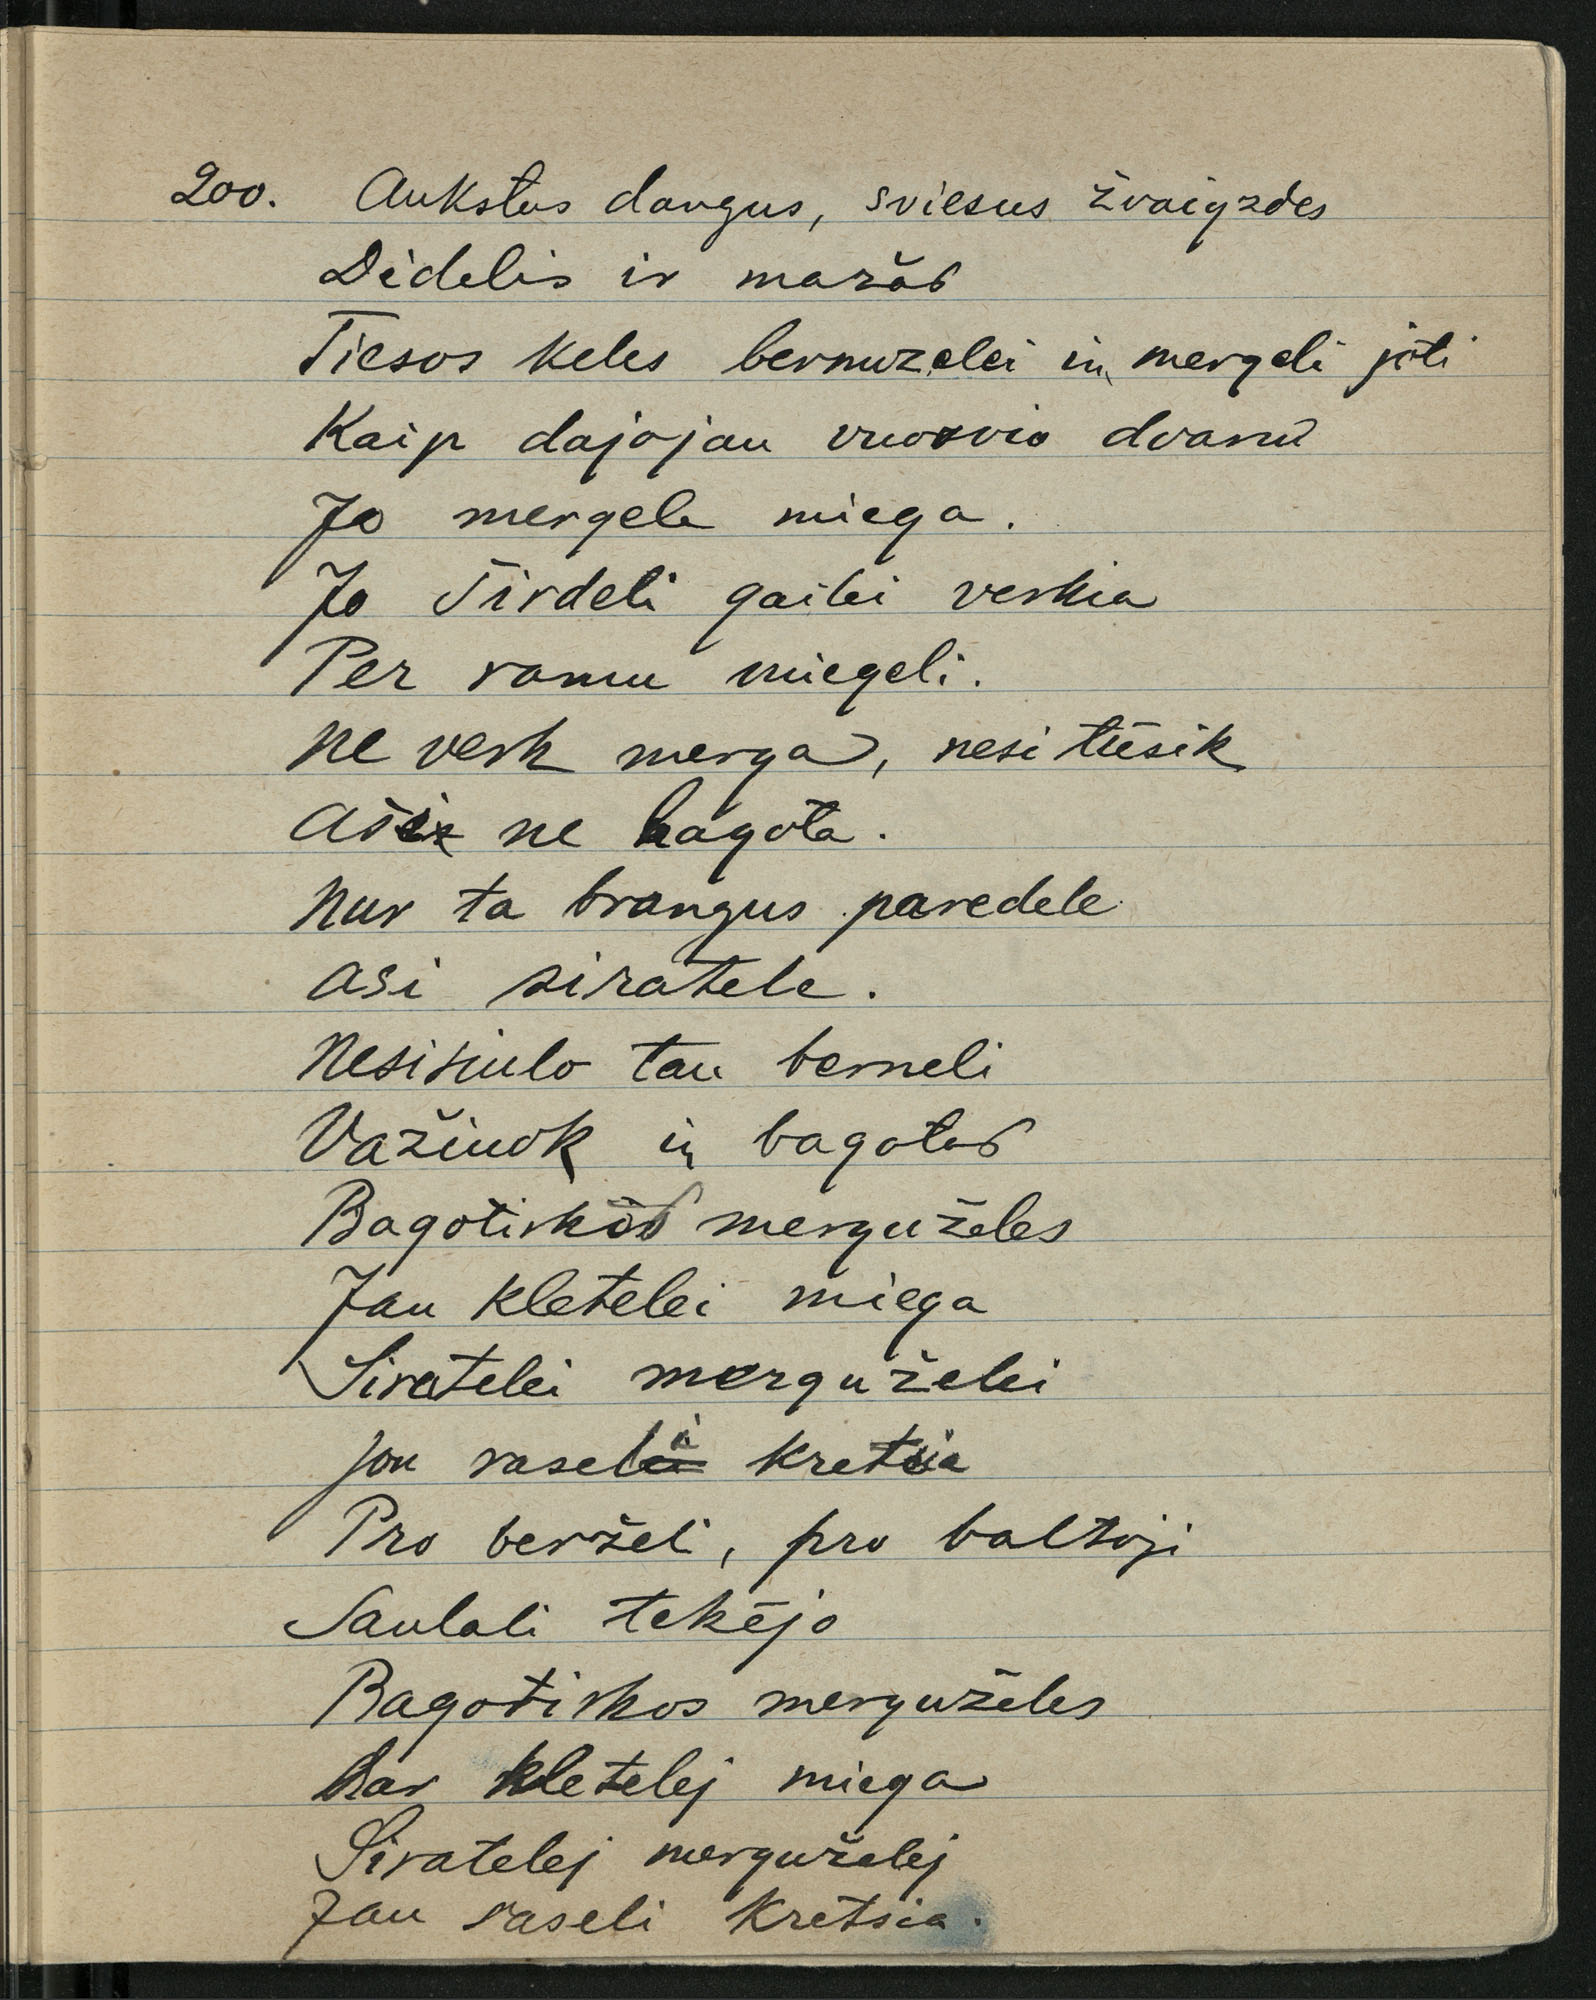 200. Aukstas dangus, sviesus žvaigzdes
Didelis ir mažas
Tiesos keles bernuzelei in mergeli joti
Kaip dajojau uosvio dvarū
Jo mergele miega.
Jo Širdeli gailei verkia
Per ramu miegeli.
Ne verk merga, nesitūsik
Aš ne bagota.
Nur ta brangus paredele
Asi siratele.
Nesisiulo tau berneli
Važiuok in bagotas
Bagotiskos merguželes
Jau kletelei miega
Siratelei merguželei
jou raseli kretsia
Pro berželi, pro baltoji
Saulali tekējo
Bagotiskos merguželes
dar kletelej miega
Siratelej merguželej
Jau raseli kretsia.